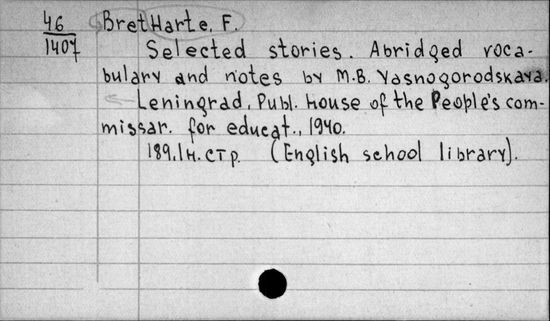 46
1407
Bret Harte, F.
Selected stories. Abridged voca-
bulary and notes by M.B. Yasnogorodskaya.
Leningrad, Publ. house of the People's com-
missar. for educat., 1940.
189.1н.стр. (English school library).